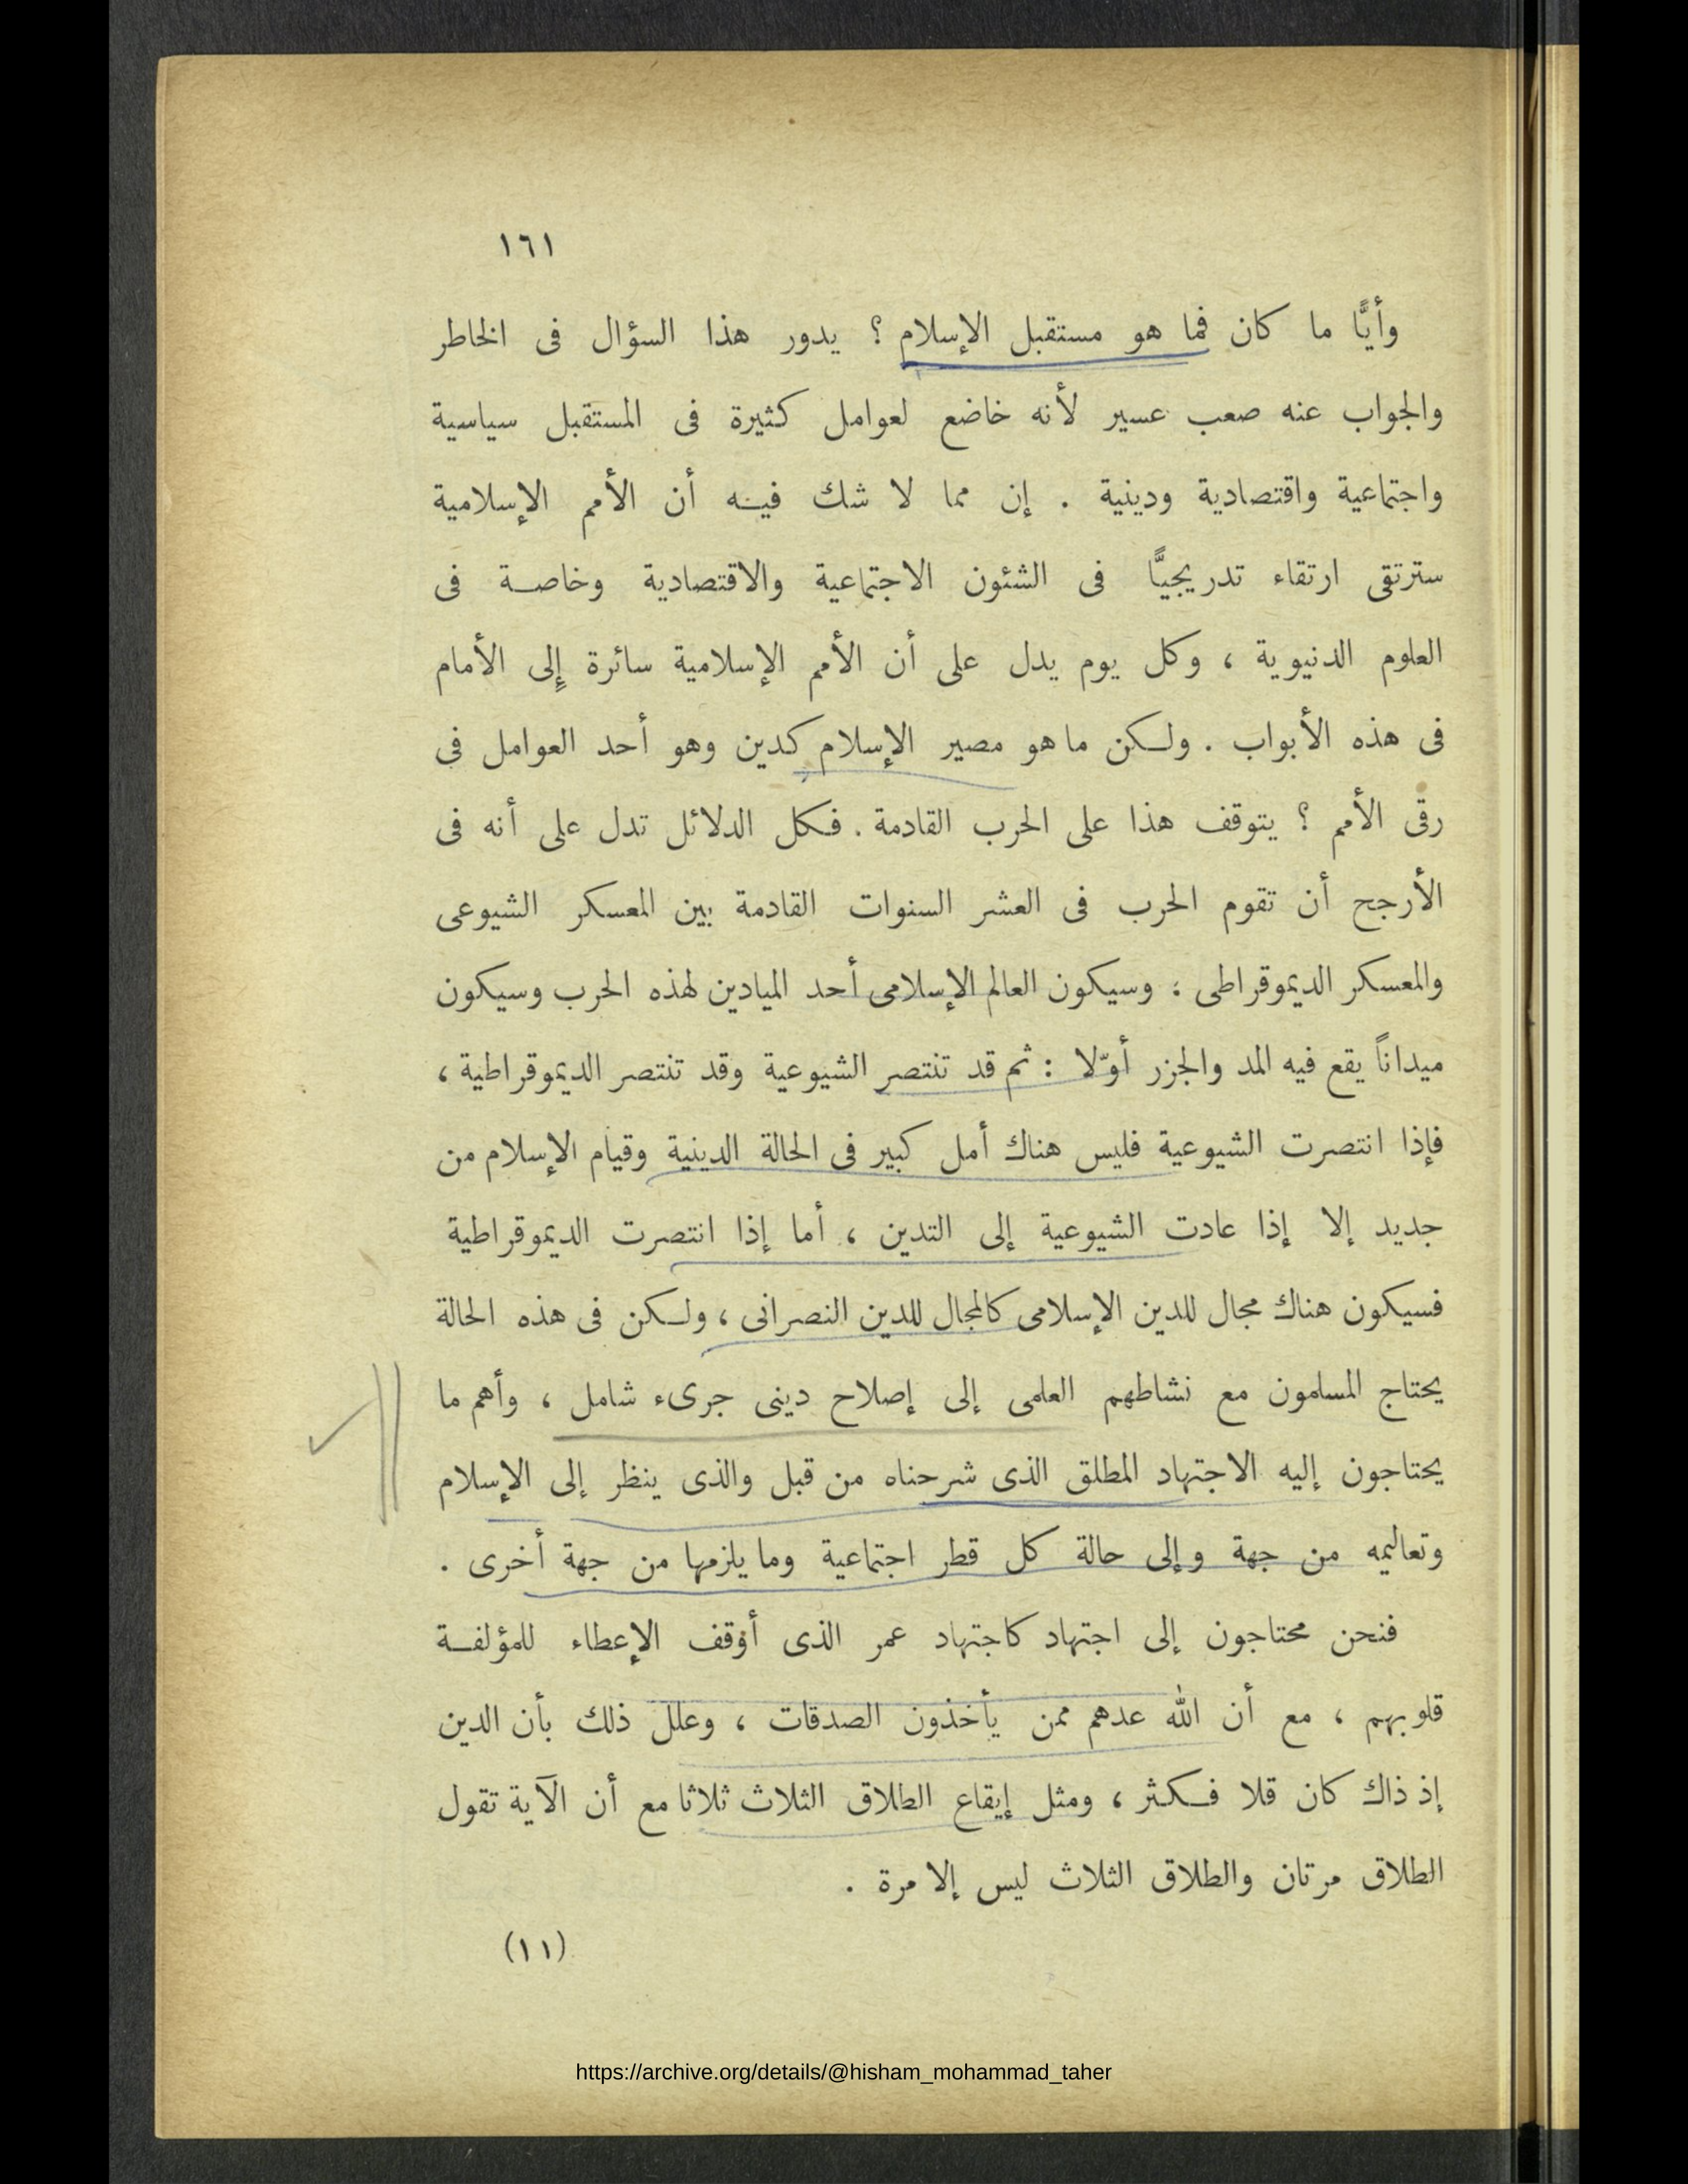 ١٦١
وأيًّا ما كان فما هو مستقبل الإسلام ؟ يدور هذا السؤال فى الخاطر
والجواب عنه صعب عسير لأنه خاضع لعوامل كثيرة فى المستقبل سياسية
واجتماعية واقتصادية ودينية . إن مما لا شك فيه أن الأمم الإسلامية
سترتقى ارتقاء تدريجيًّا فى الشئون الاجتماعية والاقتصادية وخاصة فى
العلوم الدنيوية ، وكل يوم يدل على أن الأمم الإسلامية سائرة إلى الأمام
فى هذه الأبواب . ولكن ما هو مصير الإسلام كدين وهو أحد العوامل فى
رقى الأمم ؟ يتوقف هذا على الحرب القادمة . فكل الدلائل تدل على أنه فى
الأرجح أن تقوم الحرب فى العشر السنوات القادمة بين المعسكر الشيوعى
والمعسكر الديموقراطى ؛ وسيكون العالم الإسلامى أحد الميادين لهذه الحرب وسيكون
ميداناً يقع فيه المد والجزر أوّلا : ثم قد تنتصر الشيوعية وقد تنتصر الديموقراطية ،
فإذا انتصرت الشيوعية فليس هناك أمل كبير فى الحالة الدينية وقيام الإسلام من
جديد إلا إذا عادت الشيوعية إلى التدين ، أما إذا انتصرت الديموقراطية
فسيكون هناك مجال للدين الإسلامى كالمجال للدين النصرانى ، ولكن فى هذه الحالة
يحتاج المسلمون مع نشاطهم العلمى إلى إصلاح دينى جرىء شامل ، وأهم ما
يحتاجون إليه الاجتهاد المطلق الذى شرحناه من قبل والذى ينظر إلى الإسلام
وتعاليمه من جهة وإلى حالة كل قطر اجتماعية وما يلزمها من جهة أخرى .
فنحن محتاجون إلى اجتهاد كاجتهاد عمر الذى أوقف الإعطاء للمؤلفة
قلوبهم ، مع أن الله عدهم ممن يأخذون الصدقات ، وعلل ذلك بأن الدين
إذ ذاك كان قلا فكثر ، ومثل إيقاع الطلاق الثلاث ثلاثا مع أن الآية تقول
الطلاق مرتان والطلاق الثلاث ليس إلا مرة .
(١١)
https://archive.org/details/@hisham_mohammad_taher